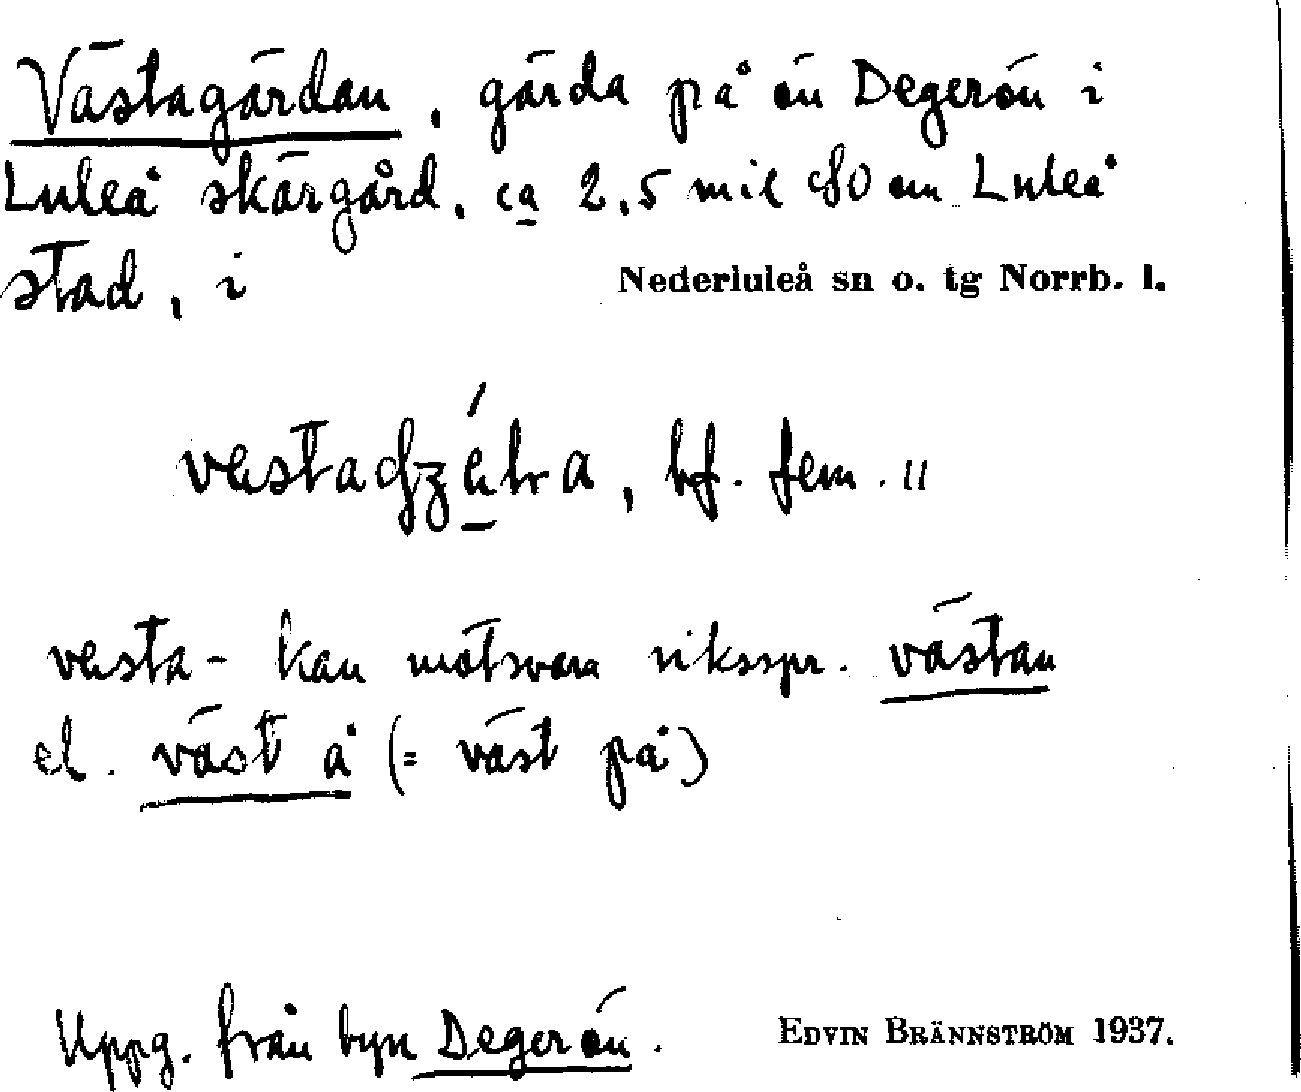 Västagärdan, gärda på ön Degerön i
Luleå skärgård, ca 2,5 mil SO om Luleå
stad, i
Nederluleå sn o. tg Norrb. l.
bf. fem. "
vesta- kan motsvara riksspr. västan
el. väst å (= väst på)
Uppg. från byn Degerön.
EDVIN BRÄNNSTRÖM 1937.